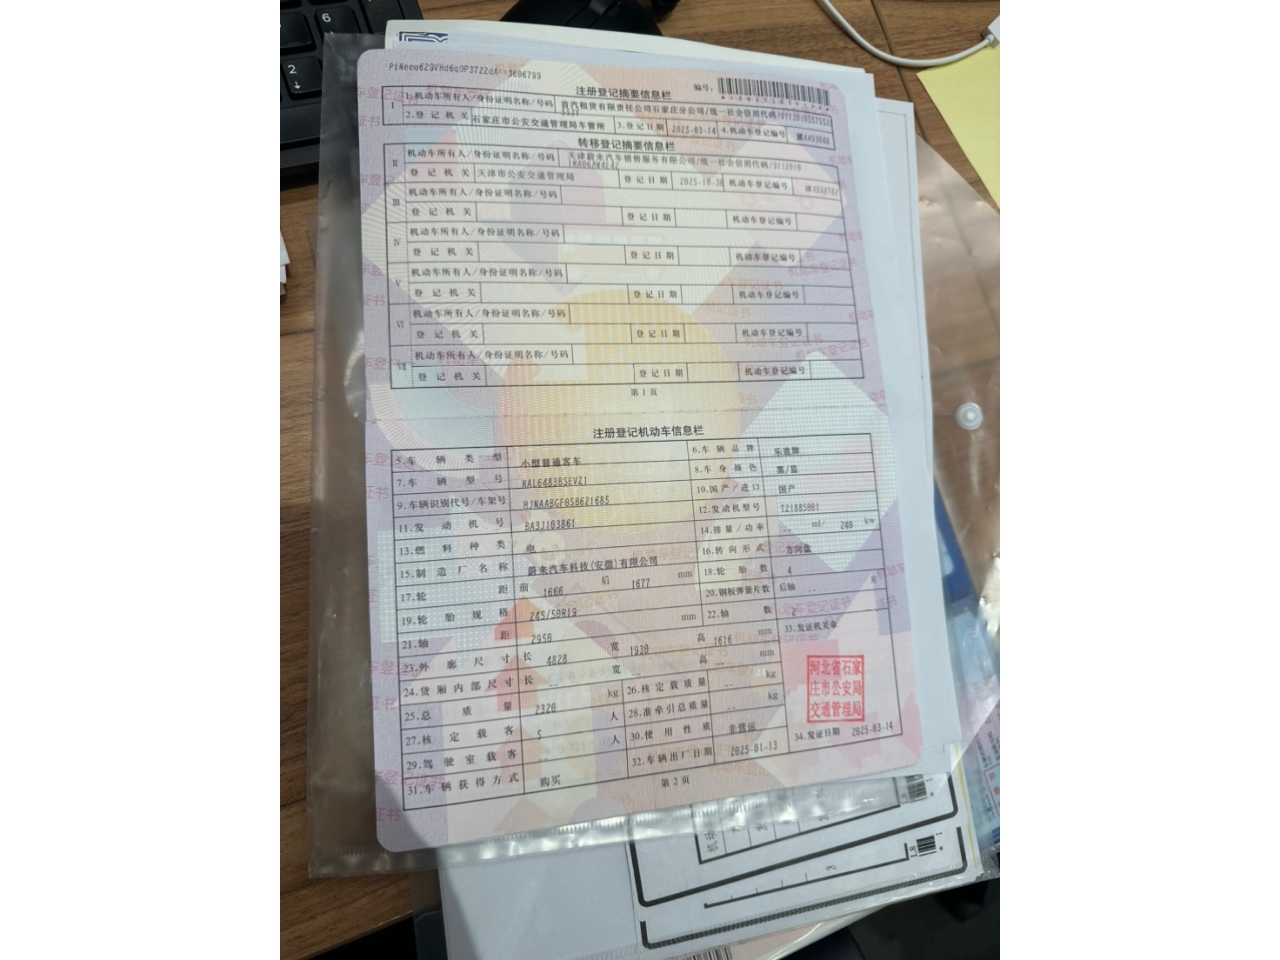 注册登记摘要信息栏
编号:
Ⅰ 1.机动车所有人/身份证明名称/号码 首汽租赁有限责任公司石家庄分公司/统一社会信用代码/
2.登记机关 石家庄市公安交通管理局车管所 3.登记日期 2025-03-14 4.机动车登记编号
转移登记摘要信息栏
Ⅱ 机动车所有人/身份证明名称/号码 天津蔚来汽车销售服务有限公司/统一社会信用代码/
登记机关 天津市公安交通管理局 登记日期 机动车登记编号
Ⅲ 机动车所有人/身份证明名称/号码
登记机关 登记日期 机动车登记编号
Ⅳ 机动车所有人/身份证明名称/号码
登记机关 登记日期 机动车登记编号
Ⅴ 机动车所有人/身份证明名称/号码
登记机关 登记日期 机动车登记编号
Ⅵ 机动车所有人/身份证明名称/号码
登记机关 登记日期 机动车登记编号
Ⅶ 机动车所有人/身份证明名称/号码
登记机关 登记日期 机动车登记编号
第1页
注册登记机动车信息栏
5.车辆类型 小型普通客车 6.车辆品牌 乐道牌
7.车辆型号 NAL6483BSEVZ1 8.车身颜色 黑/蓝
9.车辆识别代号/车架号 HJNAABGF0SB621685 10.国产/进口 国产
11.发动机号 BA3J103861 12.发动机型号 TZ188S001
13.燃料种类 电 14.排量/功率 -- ml/ 240 kw
15.制造厂名称 蔚来汽车科技(安徽)有限公司 16.转向形式 方向盘
17.轮距 前 1666 后 1677 mm 18.轮胎数 4
19.轮胎规格 245/50R19 20.钢板弹簧片数 后轴 -- 片
21.轴距 2950 mm 22.轴数 2
23.外廓尺寸 长 4828 宽 1930 高 1616 mm 33.发证机关章
24.货厢内部尺寸 长 -- 宽 -- 高 -- mm
25.总质量 2320 kg 26.核定载质量 -- kg
27.核定载客 5 人 28.准牵引总质量 -- kg
29.驾驶室载客 -- 人 30.使用性质 非营运
31.车辆获得方式 购买 32.车辆出厂日期 2025-01-13 34.发证日期 2025-03-14
河北省石家
庄市公安局
交通管理局
第2页